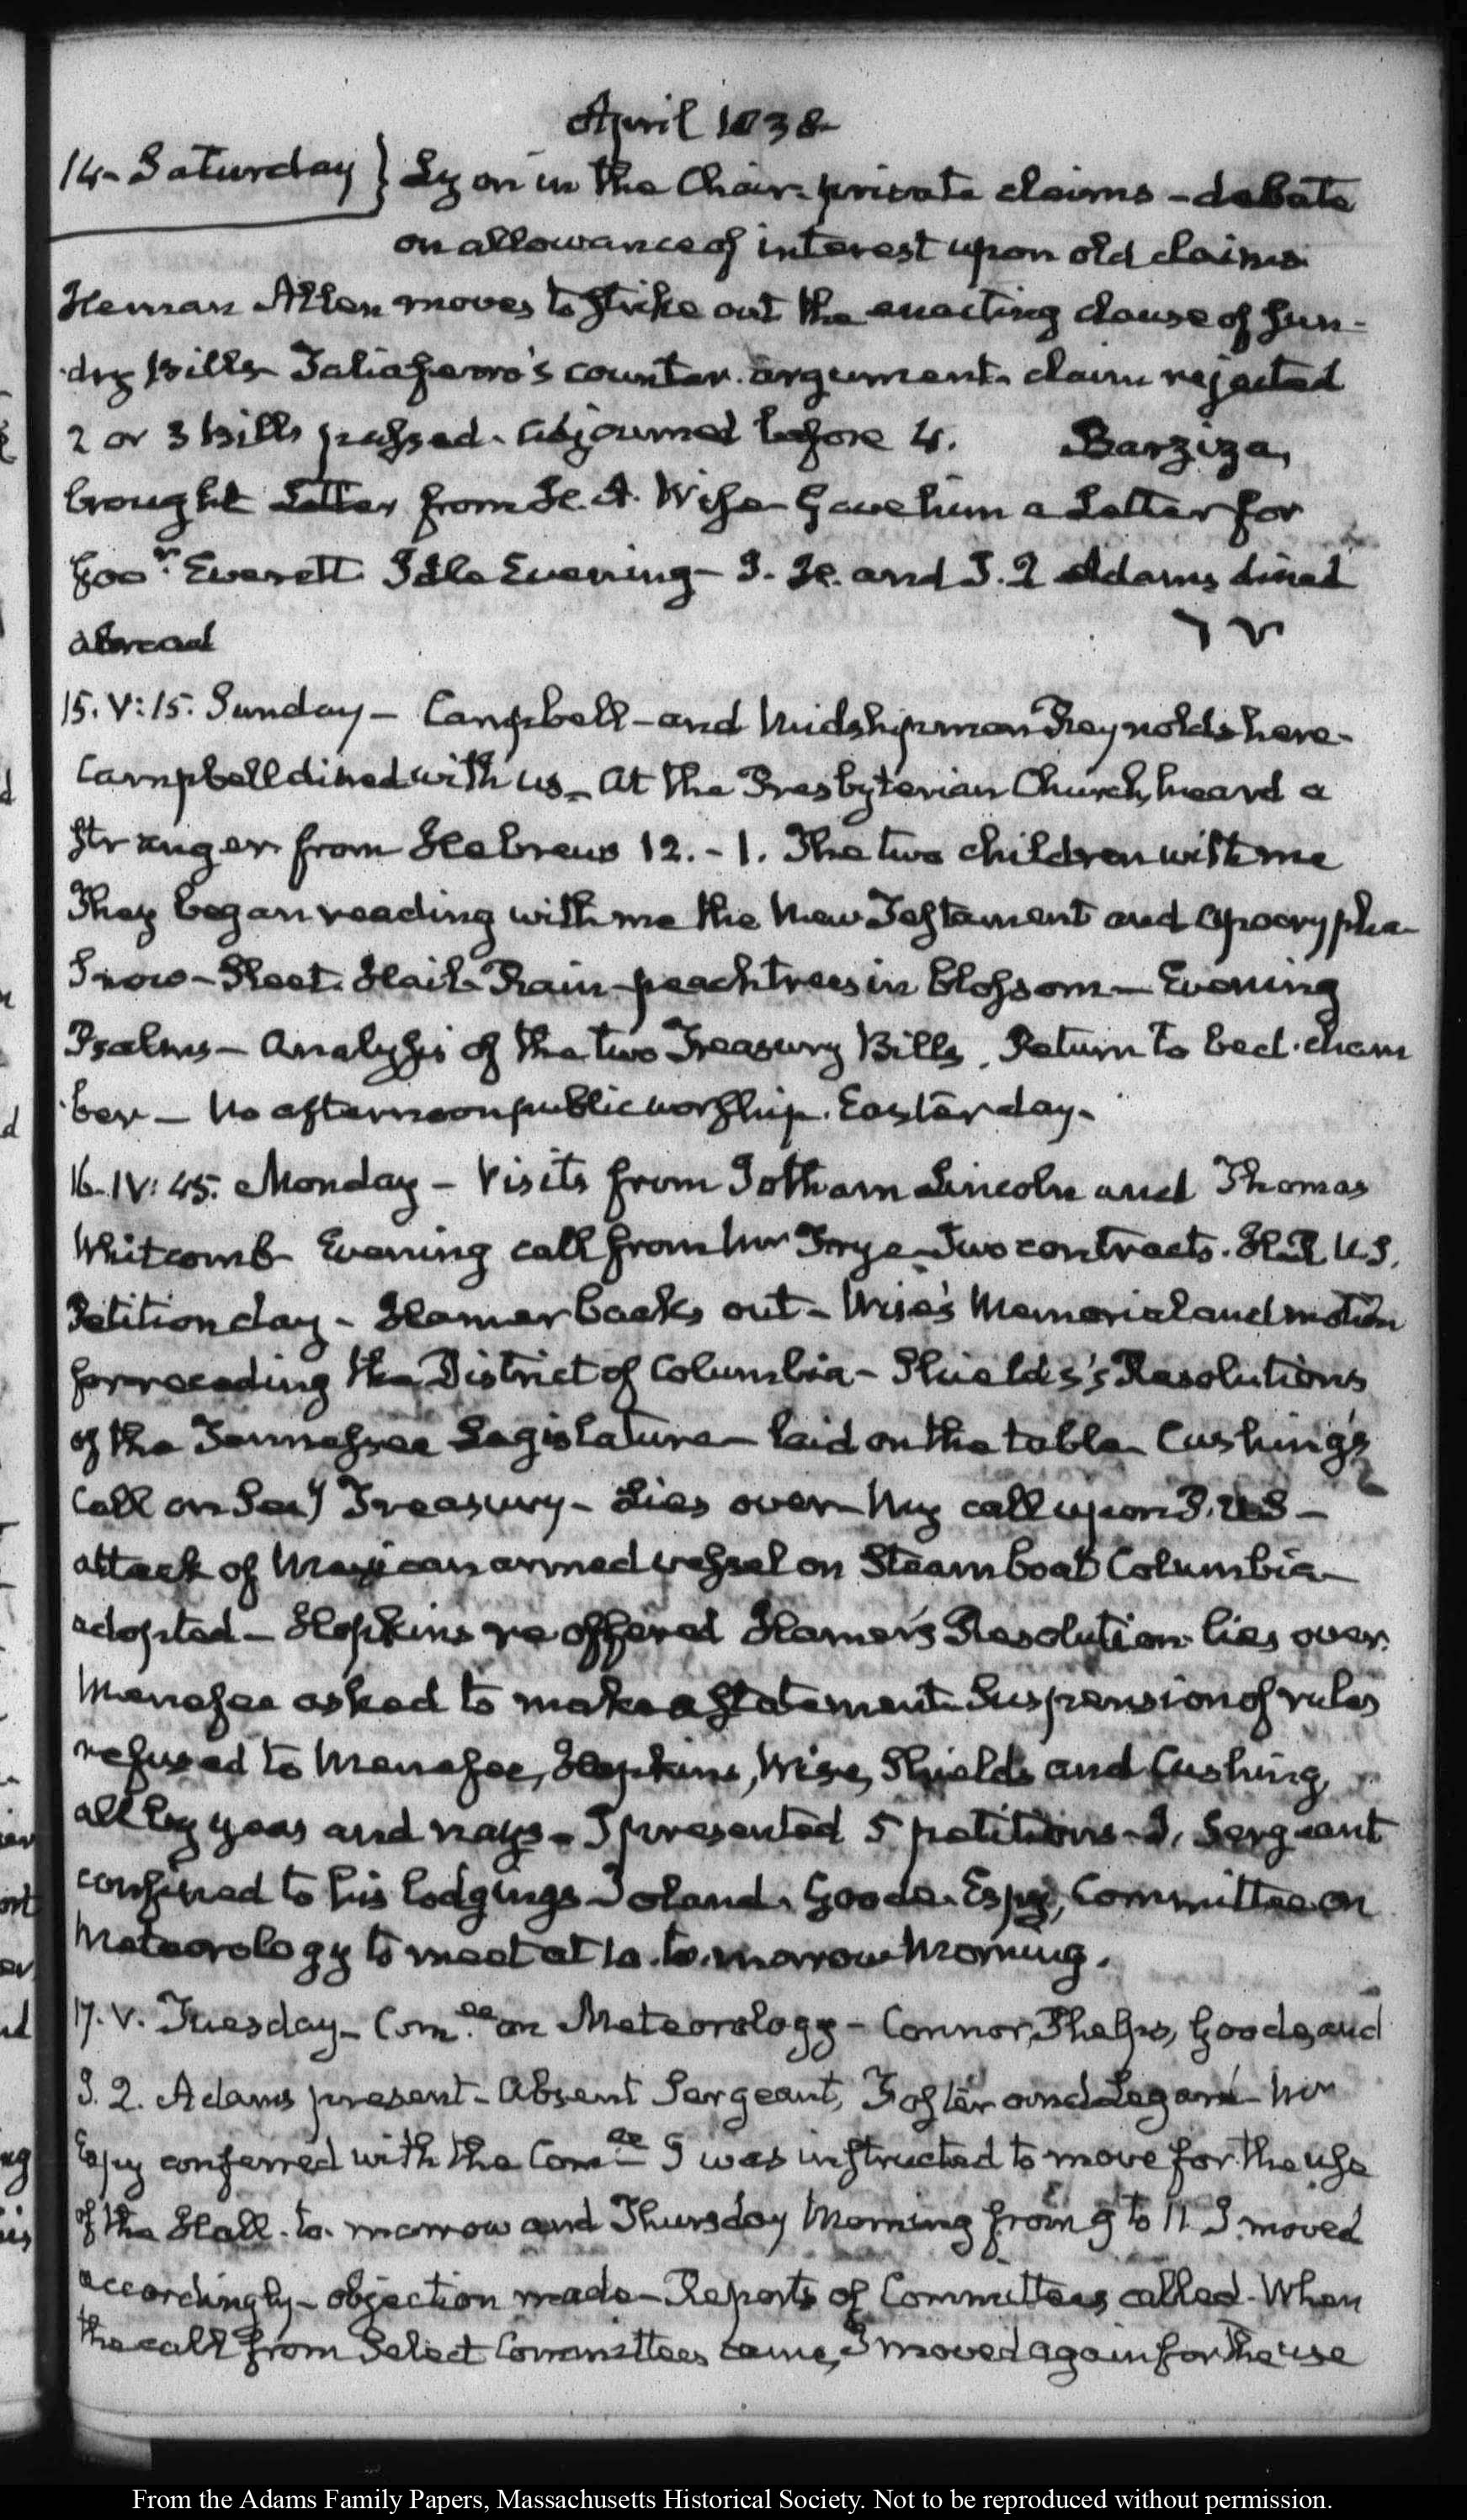 April 1838
14. Saturday } Lyon in the Chair. private claims – debate
on allowance of interest upon old claims
Heman Allen moves to strike out the enacting clause of sun-
dry bills. Taliaferro's counter. argument. claim rejected
2 or 3 bills passed. adjourned before 4. Barziza,
brought Letter from H. A. Wise. Gave him a Letter for
Govr. Everett. Idle Evening – I. H. and J. Q Adams dined
abroad
15. V: 15. Sunday – Campbell – and Midshipman Reynolds here.
Campbell dined with us. At the Presbyterian Church, heard a
stranger from Hebrews 12. – 1. The two children with me
They began reading with me the New Testament and Apocrypha
Snow – Sleet. Hail. Rain – peach trees in blossom – Evening
Psalms – Analysis of the two Treasury Bills. Return to bed. cham
ber – No afternoon public worship. Easter day.
16. IV: 45. Monday – Visits from Jotham Lincoln and Thomas
Whitcomb Evening call from Mr Frye. Two contracts. H. R. U. S.
Petition day – Hamer backs out – Wise's Memorial and motion
for receding the District of Columbia – Shields's Resolutions
of the Tennessee Legislature – laid on the table. Cushing's
Call on Secy Treasury – Lies over – My call upon P. U S –
attack of Mexican armed vessel on Steam boat Columbia –
adopted – Hopkins re offered Hamer's Resolution. lies over.
Menefee asked to make a statement. Suspension of rules
refused to Menefee, Hopkins, Wise, Shields and Cushing,
all by yeas and nays. I presented 5 petitions – J. Sergeant
confined to his lodgings – Toland. Goode. Espy, Committee on
Meteorology to meet at 10. to. morrow Morning.
17. V. Tuesday – Com.ee on Meteorology – Connor, Phelps, Goode, and
J. Q. Adams present – Absent Sergeant, Foster and Legaré – Mr
Espy conferred with the Com.ee I was instructed to move for the use
of the Hall. to. morrow and Thursday Morning from 9 to 11. I moved
accordingly – objection made – Reports of Committees called. When
the call from Select Committees came, I moved again for the use
From the Adams Family Papers, Massachusetts Historical Society. Not to be reproduced without permission.